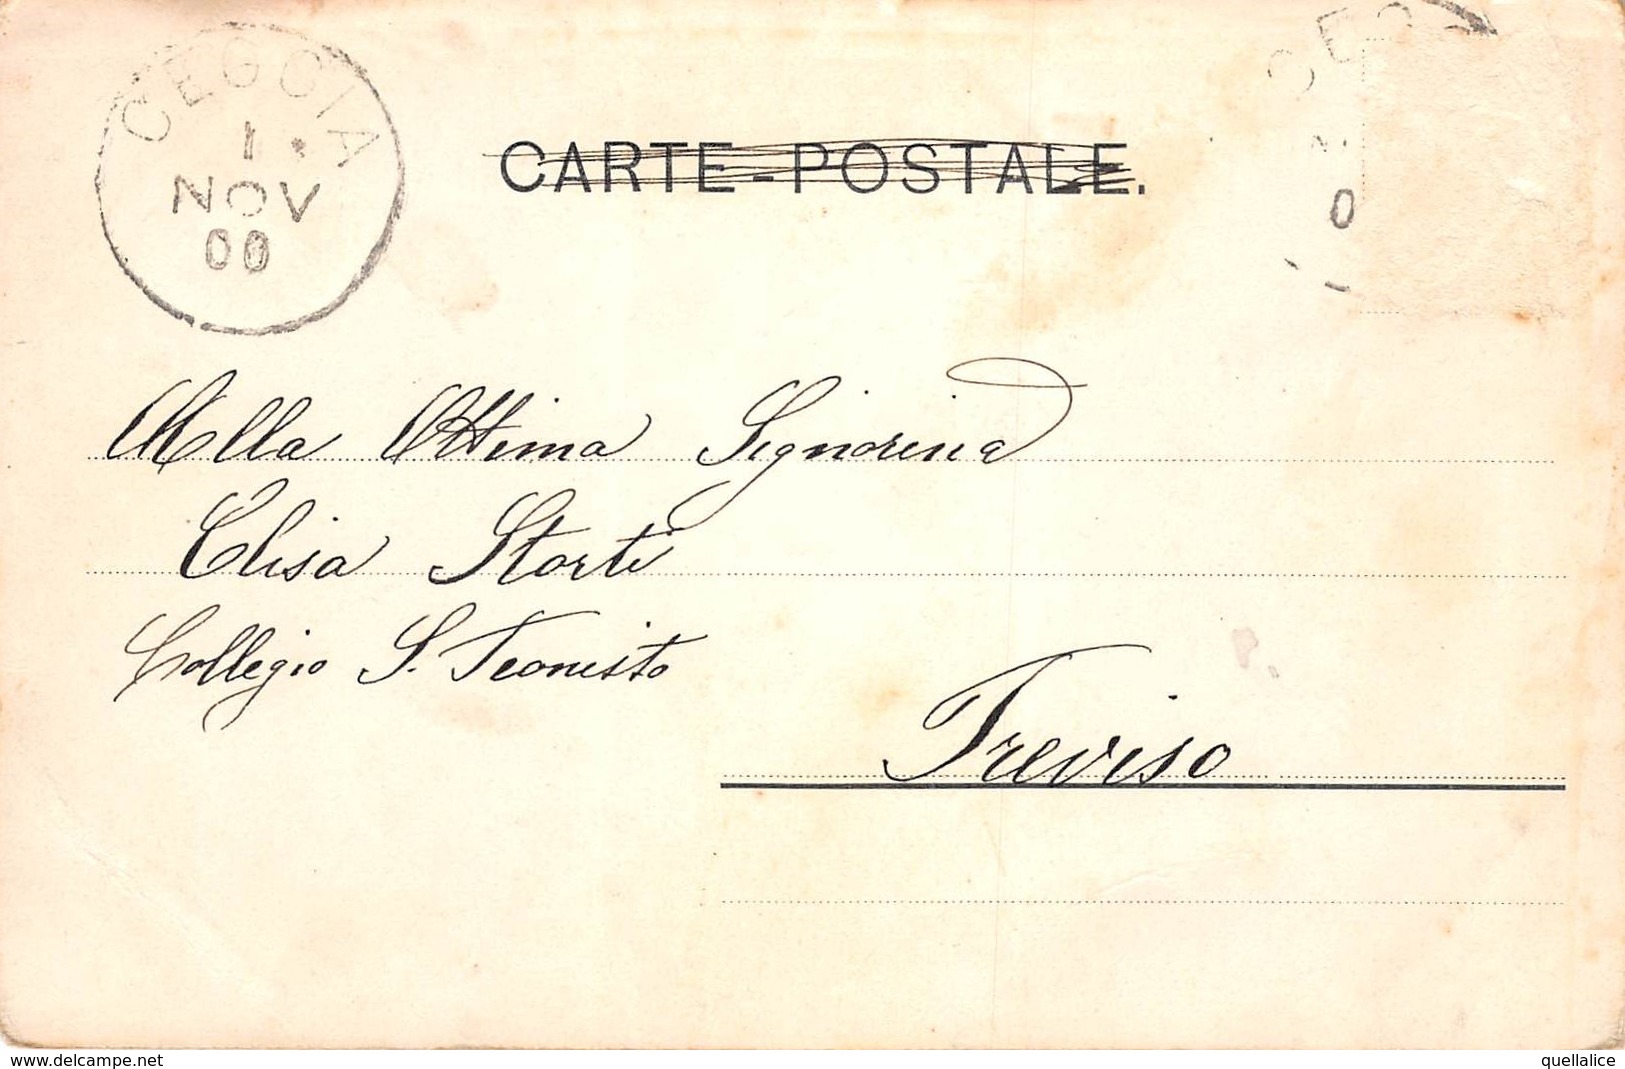 CEGGIA
1
NOV
00
CEG
0
CARTE-POSTALE.
Alla Ottima Signorina
Elisa Storti
Collegio S. Teonisto
Treviso
www.delcampe.net
quellalice